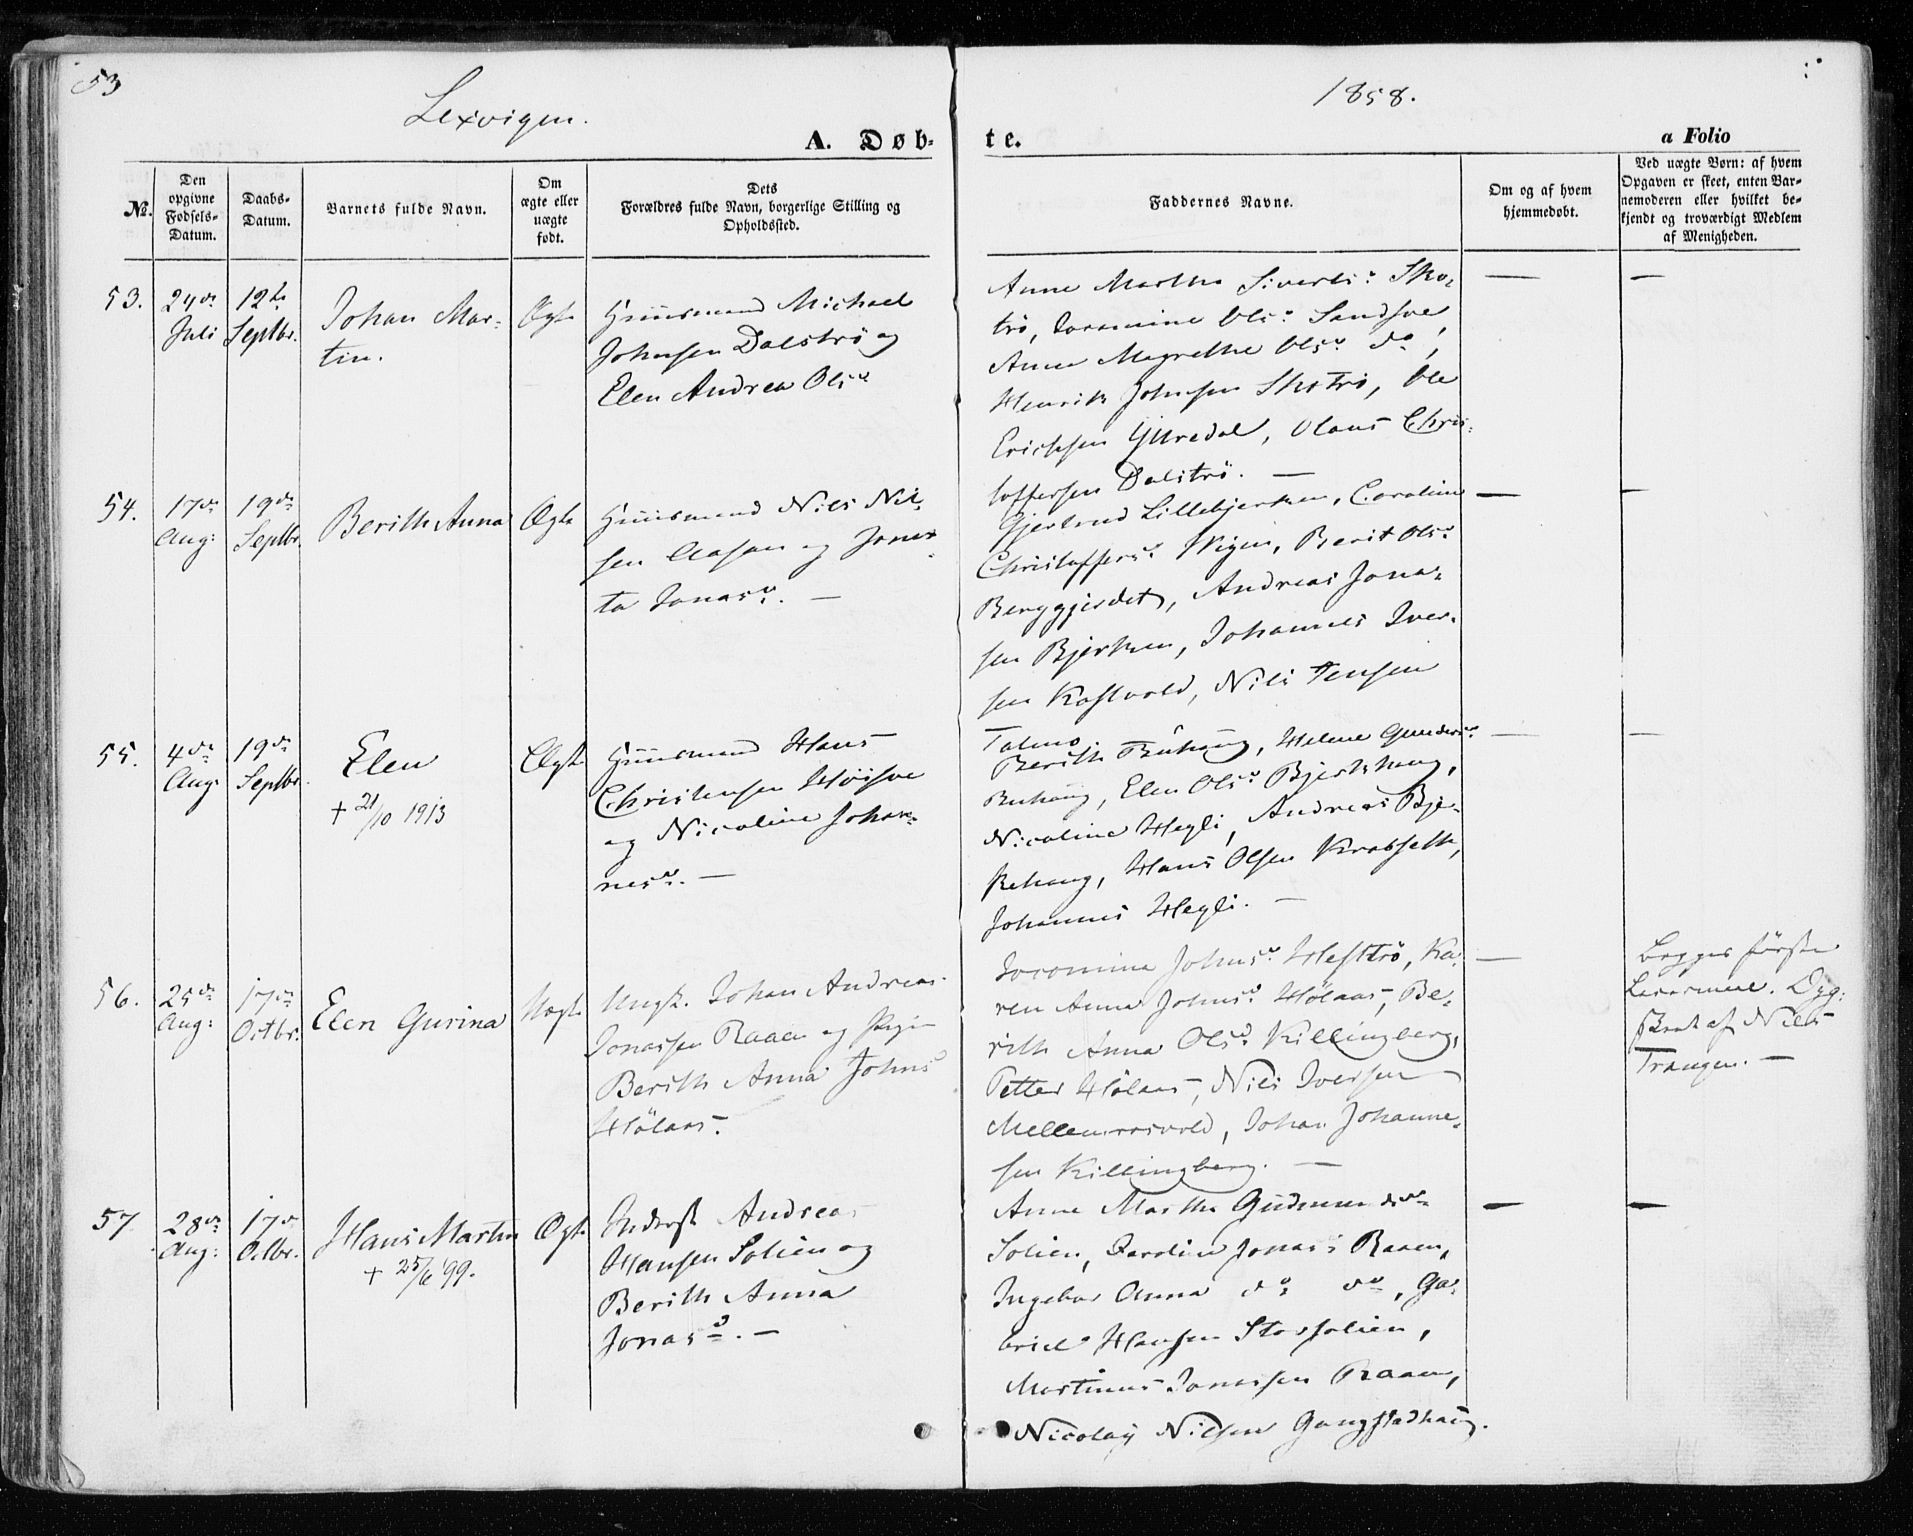 53
Lexvigen.
1858.
A. Døb-
te.
a Folio
No.
Den opgivne Fødsels-Datum.
Daabs-Datum.
Barnets fulde Navn.
Om ægte eller uægte født.
Dets Forældres fulde Navn, borgerlige Stilling og Opholdssted.
Faddernes Navne.
Om og af hvem hjemmedøbt.
Ved uægte Børn: af hvem Opgaven er skeet, enten Bar-nemoderen eller hvilket be-kjendt og troværdigt Medlem af Menigheden.
53.
24de
Juli
12te
Septbr.
Johan Mar-
tin.
Ægte
Huusmand Michael
Johnsen Dalstrø og
Elen Andrea Olsd
Anne Martha Sivertsd Sko-
trø, Olsd Sandsve,
Anne Magrethe Olsd do,
Henrik Johnsen Skotrø, Ole
Erichsen Yttredal, Olaus Chris-
toffersen Dalstrø. —
— —
54.
17de
Aug:
19de
Septbr.
Berith Anna
Ægte
Huusmand Nils Nil-
sen Aasan og
ta Jonasd. —
Gjertrud Lillebjerken, Caroline
Christoffersd Vigen, Berit Olsd
Berggjerdet, Andreas Jona-
sen Bjerken, Johannes Iver-
sen Kastvold, Nils Jensen
— —
55.
4de
Aug.
19de
Septbr.
Elen
+ 21/10 1913
Ægte
Huusmand Hans
Christensen Høisve
og Nicoline Johan-
nesd. —
Berith Buhaug, Helene Gundersd
Buhaug, Elen Olsd Bjerkehaug,
Nicoline Hegli, Andreas Bje-
rkehaug, Hans Olsen Krabseth,
Johannes Hegli. —
— —
56.
25de
Aug:
17de
Octbr.
Elen Gurina
Uægte
Ungk. Johan Andreas
Jonassen Raaen og Pige
Berith Anna Johnsd
Hølaas.
Johnsd Hestrø, Ka-
ren Anna Johnsd Hølaas, Be-
rith Anna Olsd Killingberg,
Petter Hølaas, Nils Iversen
Mellemrosvold, Johan Johanne-
sen Killingberg. —
—
Begges første
Leiermaal. Opg:
skeet af Nils
Trangen. —
57.
28de
Aug:
17de
Octbr.
Hans Martin
+ 25/6 99.
Ægte
Inderst Andreas
Hansen Solien og
Berith Anna
Jonasd. —
Anne Martha Gudmundsd
Solien, Caroline Jonasd Raaen,
Ingebor Anna do do, Ga-
briel Hansen Storsolien,
Martinus Jonassen Raaen,
Nicolay Nilsen Gangstadhaug.
— —